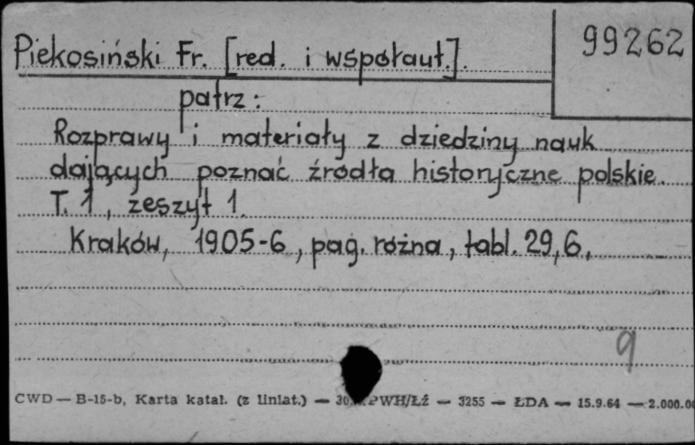 99262
Piekosiński Fr. [red. i współaut.].
patrz:
Rozprawy i materiały z dziedziny nauk
dających poznać źródła historyczne polskie.
T. 1, zeszyt 1.
Kraków, 1905-6, pag. różna, tabl. 29,6,
9
CWD — B-15-b, Karta katal. (z liniat.) — PWH/Łż — 3255 — ŁDA — 15.9.64 — 2.000.0